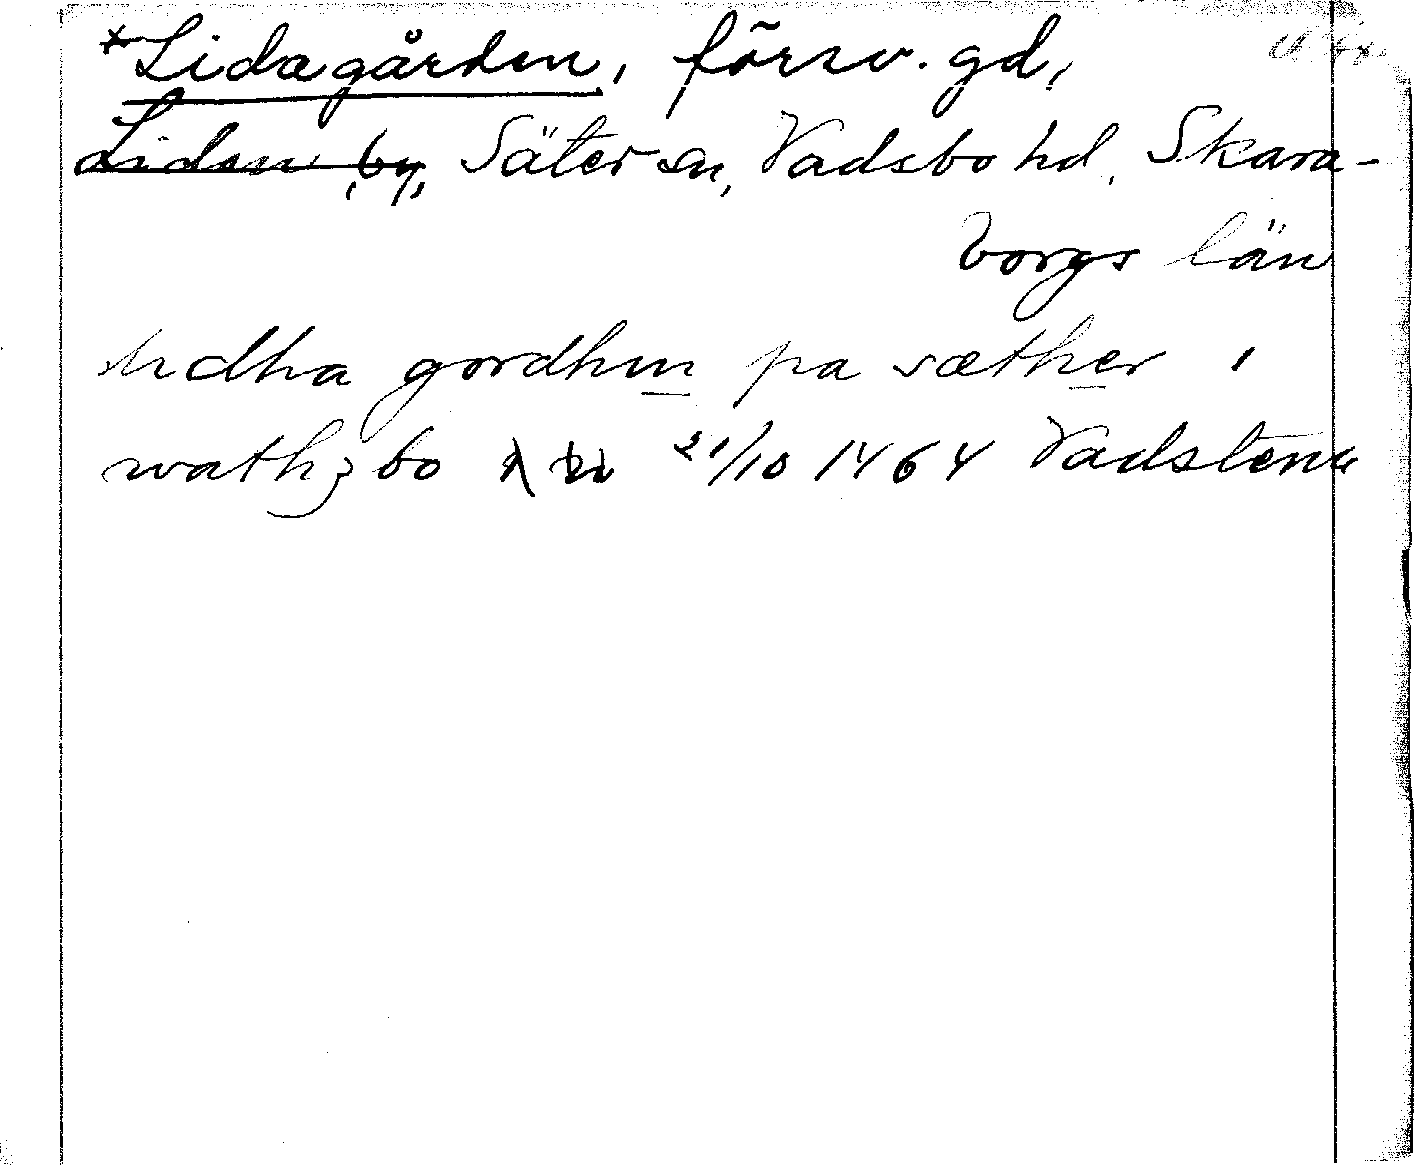 *Lidagården, försv. gd,
Liden, by, Säter sn, Vadsbo hd, Skara-
borgs län
lidha gordhen pa sæther i
wathzbo 21/10 1464 Vadstena